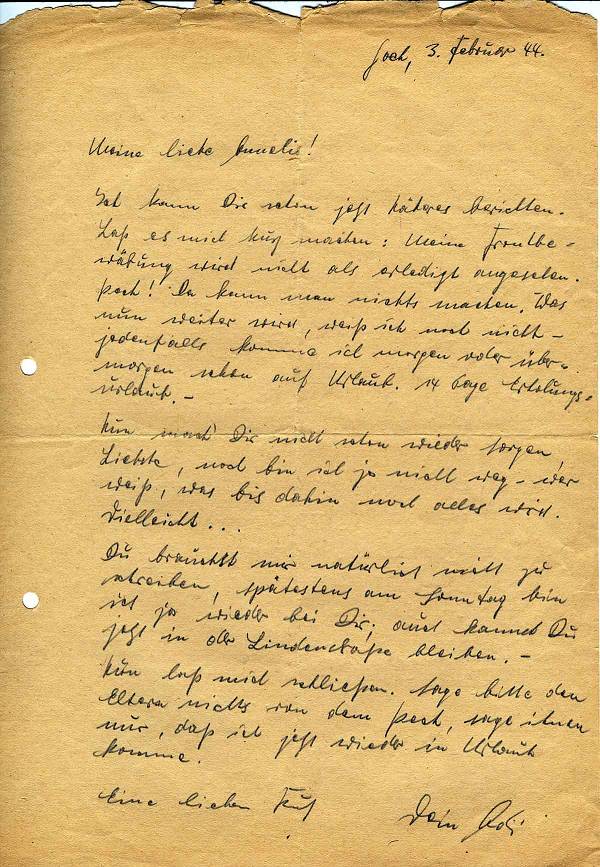 Goch, 3. Februar 44.
Meine liebe Annelie!
Ich kann Dir schon jetzt Näheres berichten.
Laß es mich kurz machen: Meine Frontbe-
währung wird nicht als erledigt angesehen.
Pech! Da kann man nichts machen. Was
nun weiter wird, weiß ich noch nicht –
jedenfalls komme ich morgen oder über-
morgen schon auf Urlaub. 14 Tage Erholungs-
urlaub. –
Nun mach Dir nicht schon wieder Sorgen
Liebste, noch bin ich ja nicht weg – wer
weiß, was bis dahin noch alles wird.
Vielleicht...
Du brauchst mir natürlich nicht zu
schreiben, spätestens am Sonntag bin
ich ja wieder bei Dir; auch kannst Du
jetzt in der Lindenstraße bleiben. –
Nun laß mich schließen. Sage bitte den
Eltern nichts von dem Pech, sage ihnen
nur, daß ich jetzt wieder in Urlaub
komme.
Eine lieben Kuß
Dein Adi